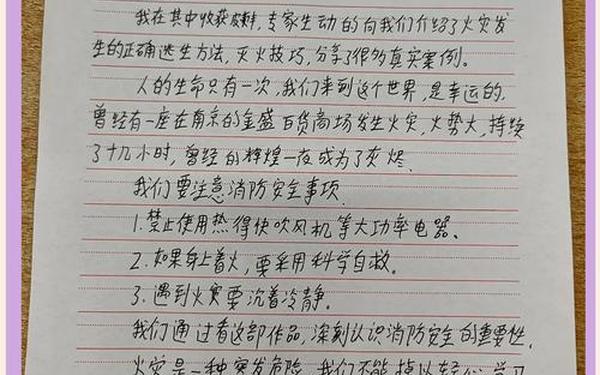 我在其中收获颇丰,专家生动的向我们介绍了火灾发
生的正确逃生方法,灭火技巧,分享了很多真实案例。
人的生命只有一次,我们来到这个世界,是幸运的,
曾经有一座在南京的金盛百货商场发生火灾,火势大,持续
了十几小时,曾经的辉煌一夜成为了灰烬.
我们要注意消防安全事项.
1.禁止使用热得快吹风机等大功率电器。
2.如果身上着火,要采用科学自救。
3.遇到火灾要沉着冷静。
我们通过看这部作品,深刻认识消防安全的重要性,
火灾是一种突发危险,我们不能掉以轻心,学习